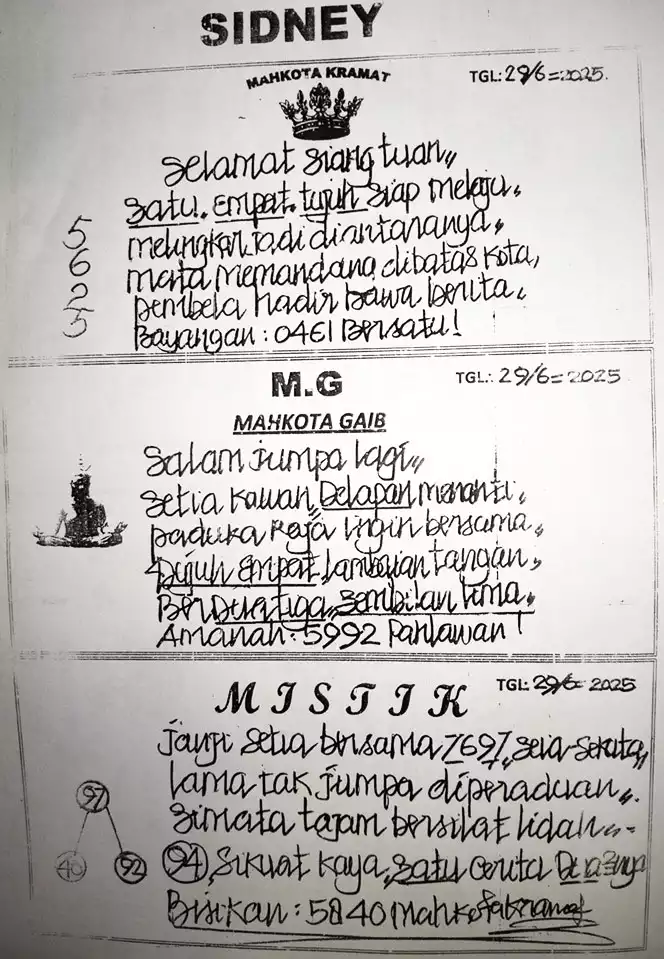 SIDNEY
MAHKOTA KRAMAT
TGL: 29/6=2025.
Selamat siang tuan,,
satu. empat. tujuh siap melaju.
5
melingkar jadi diantaranya,
6
mata memandang dibatas kota,
2
pembela hadir bawa berita.
5
Bayangan : 0461 Bersatu!
M.G
TGL: 29/6=2025
MAHKOTA GAIB
Salam jumpa lagi,,
setia kawan, Delapan menanti.
paduka Raja ingin bersama,
Tujuh empat lambaian tangan,
BerDua tiga, sembilan lima,
Amanah: 5992 Pahlawan!
MISTIK
TGL: 29/6= 2025
janji setia bersama 7697, seia-sekata,
lama tak jumpa diperaduan,,
97
simata tajam bersilat lidah,,
40 92
94, sikuat kaya, satu cerita Dua3nya
Bisikan : 5840